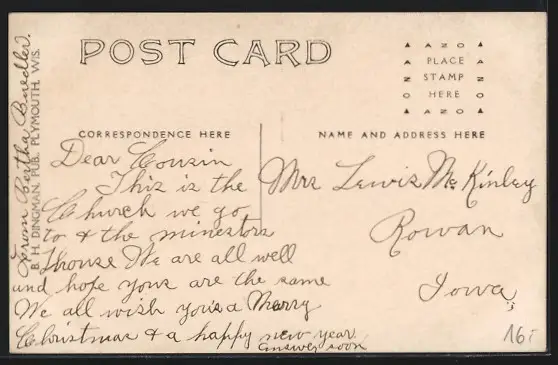 POST CARD
▲ A Z O ▲
A PLACE A
Z STAMP Z
O HERE O
▲ A Z O ▲
CORRESPONDENCE HERE
NAME AND ADDRESS HERE
From Bertha
B. H. DINGMAN, PUB. PLYMOUTH, WIS.
Dear Cousin
This is the
Church we go
to & the minestors
House We are all well
and hope yours are the same
We all wish you's a Marry
Christmas & a happy new year.
answer soon
Mrs Lewis McKinley
Rowan
Iowa
16